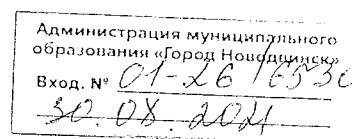 Администрация муниципального
образования «Город Новодвинск»
Вход. № 01-26/6530
30.08.2021